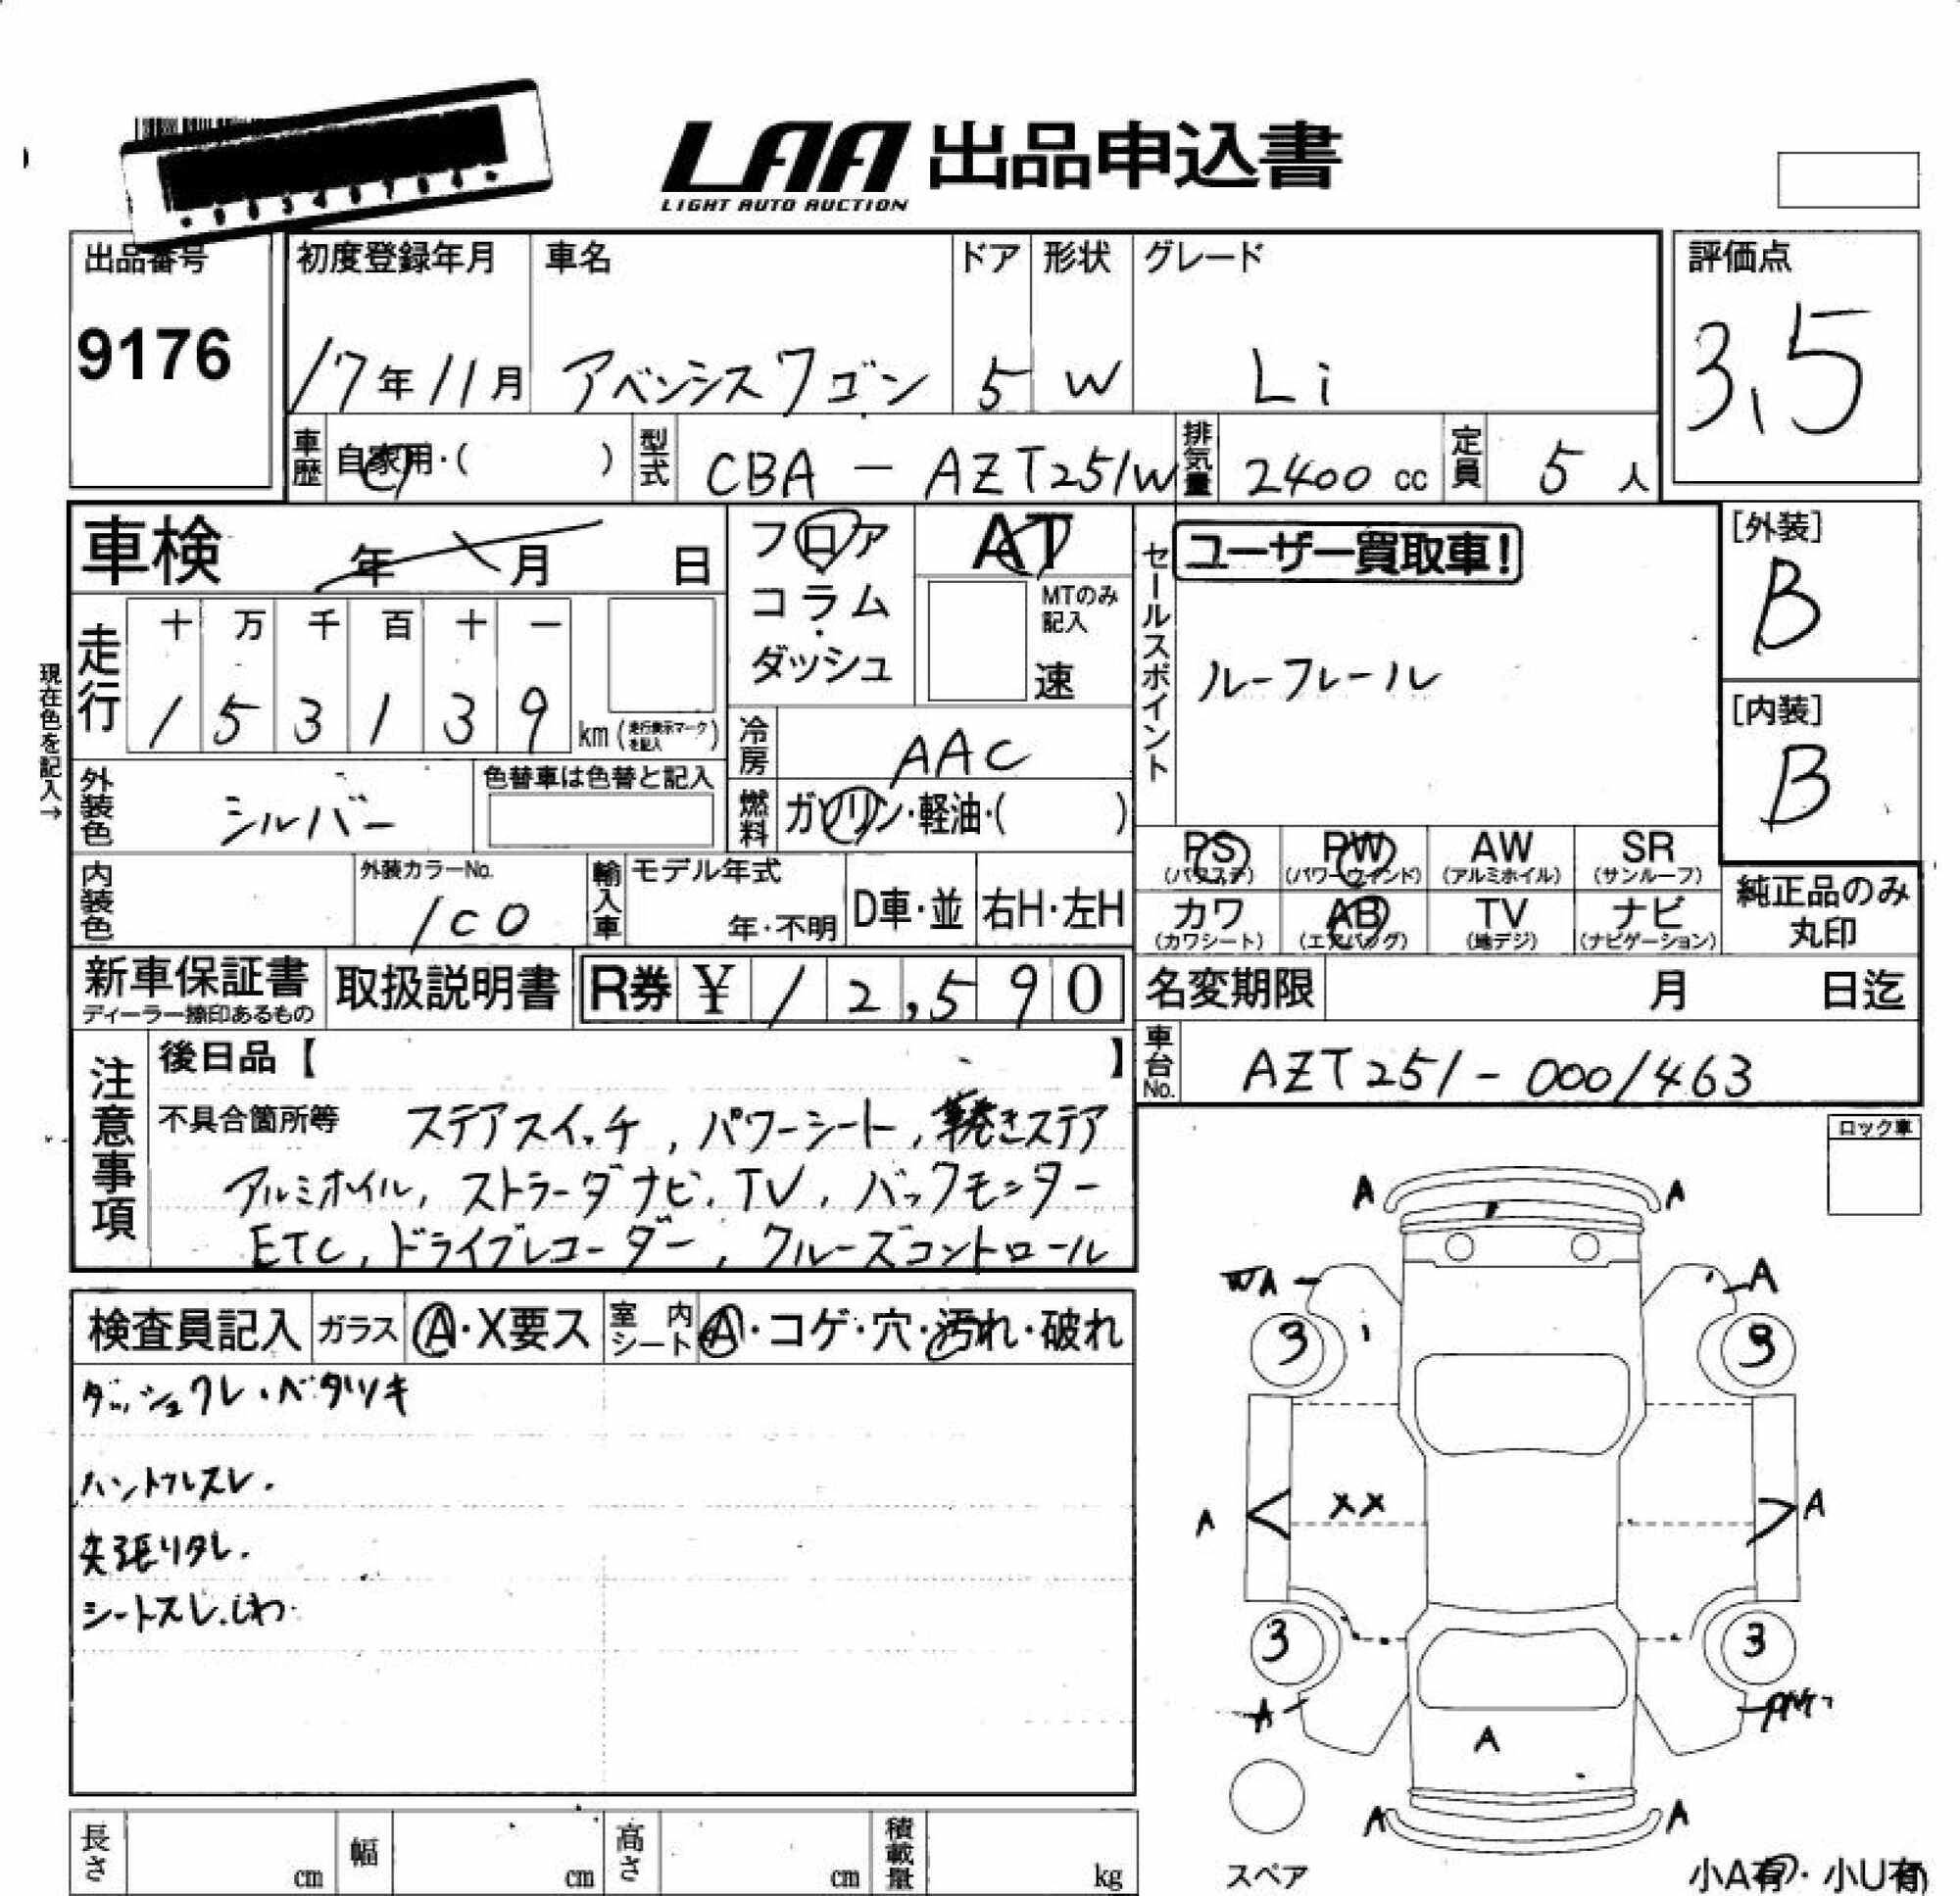 LAA 出品申込書
LIGHT AUTO AUCTION
出品番号
9176
初度登録年月
17年11月
車名
アベンシスワゴン
ドア
5
形状
W
グレード
Li
評価点
3.5
車歴
自家用・( )
型式
CBA - AZT251W
排気量
2400 cc
定員
5 人
車検 年 月 日
フロア
コラム
・
ダッシュ
AT
MTのみ
記入
速
セールスポイント
ユーザー買取車!
ルーフレール
[外装]
B
[内装]
B
現在色を記入→
走行
十 万 千 百 十 一
1 5 3 1 3 9 km (走行表示マークを記入)
冷房
AAC
外装色
シルバー
色替車は色替と記入
燃料
ガソリン・軽油・( )
内装色
外装カラーNo.
1C0
輸入車
モデル年式
年・不明
D車・並
右H・左H
PS
(パワステ)
PW
(パワーウィンド)
AW
(アルミホイル)
SR
(サンルーフ)
カワ
(カワシート)
AB
(エアバッグ)
TV
(地デジ)
ナビ
(ナビゲーション)
純正品のみ
丸印
新車保証書
ディーラー捺印あるもの
取扱説明書
R券 ¥ 12,590
名変期限 月 日迄
車台No.
AZT251-0001463
注意事項
後日品【 】
不具合箇所等 ステアスイッチ, パワーシート, 革巻きステア
アルミホイル, ストラーダナビ, TV, バックモニター
ETC, ドライブレコーダー, クルーズコントロール
ロック車
検査員記入
ガラス
A・X要ス
室内シート
A・コゲ・穴・汚れ・破れ
ダッシュワレ・ベタツキ
ハンドルスレ.
天張りタレ.
シートスレ.しわ
A A
A
3 3
A XX A
3 3
A
A
A A
スペア
小A有・小U有
長さ cm
幅 cm
高さ cm
積載量 kg